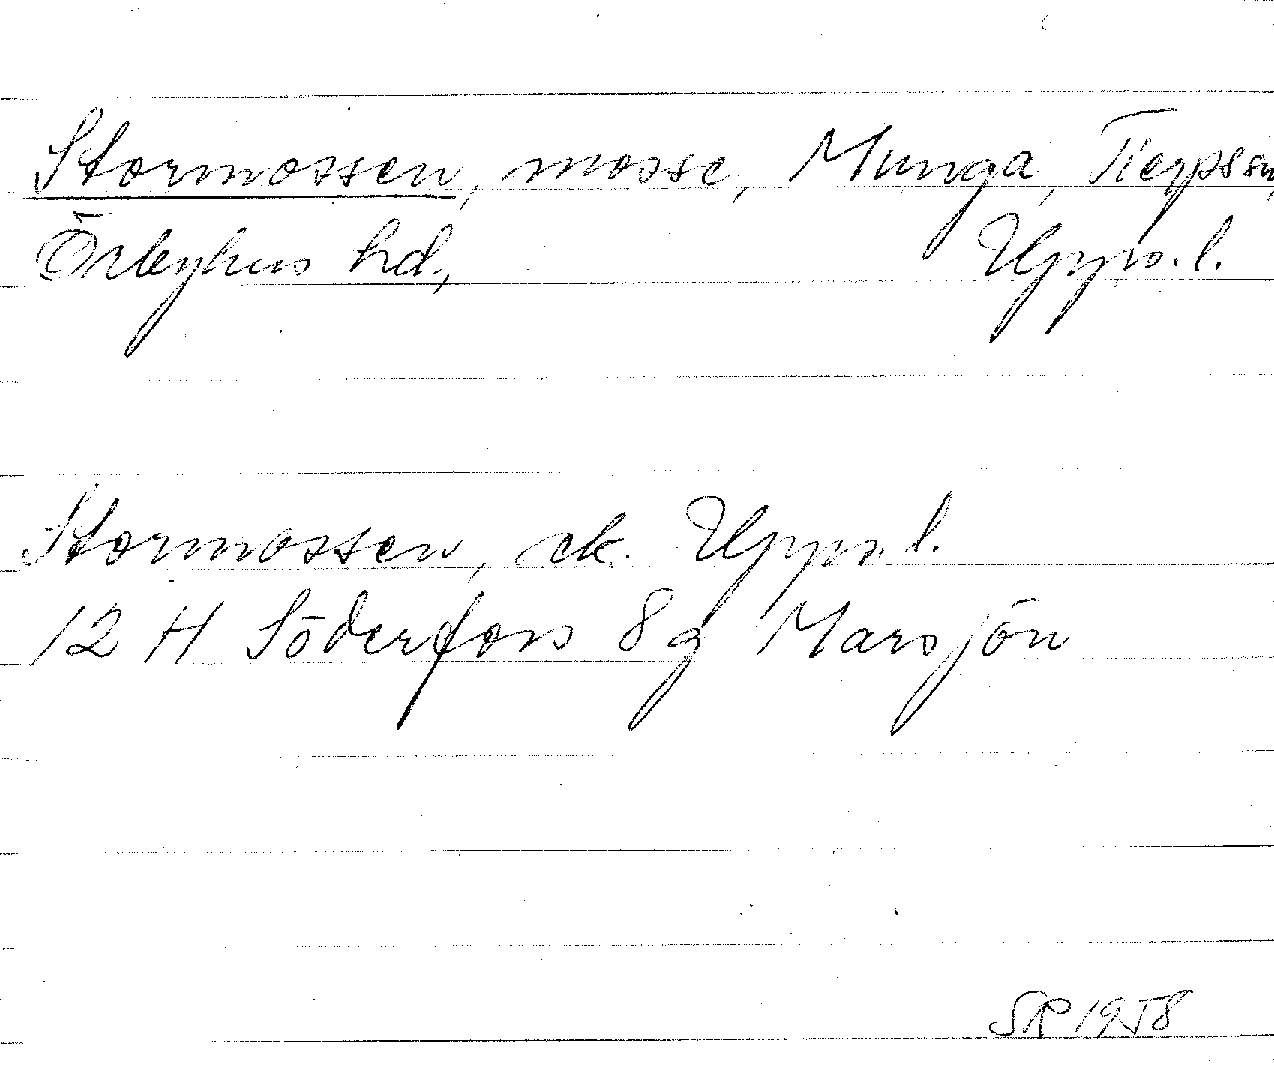 Stormossen, mosse, Munga, Tierps sn,
Örbyhus hd, Upps.l.
Stormossen, ek. Upps.l.
12 H Söderfors 8g Marsjön
SR 1958